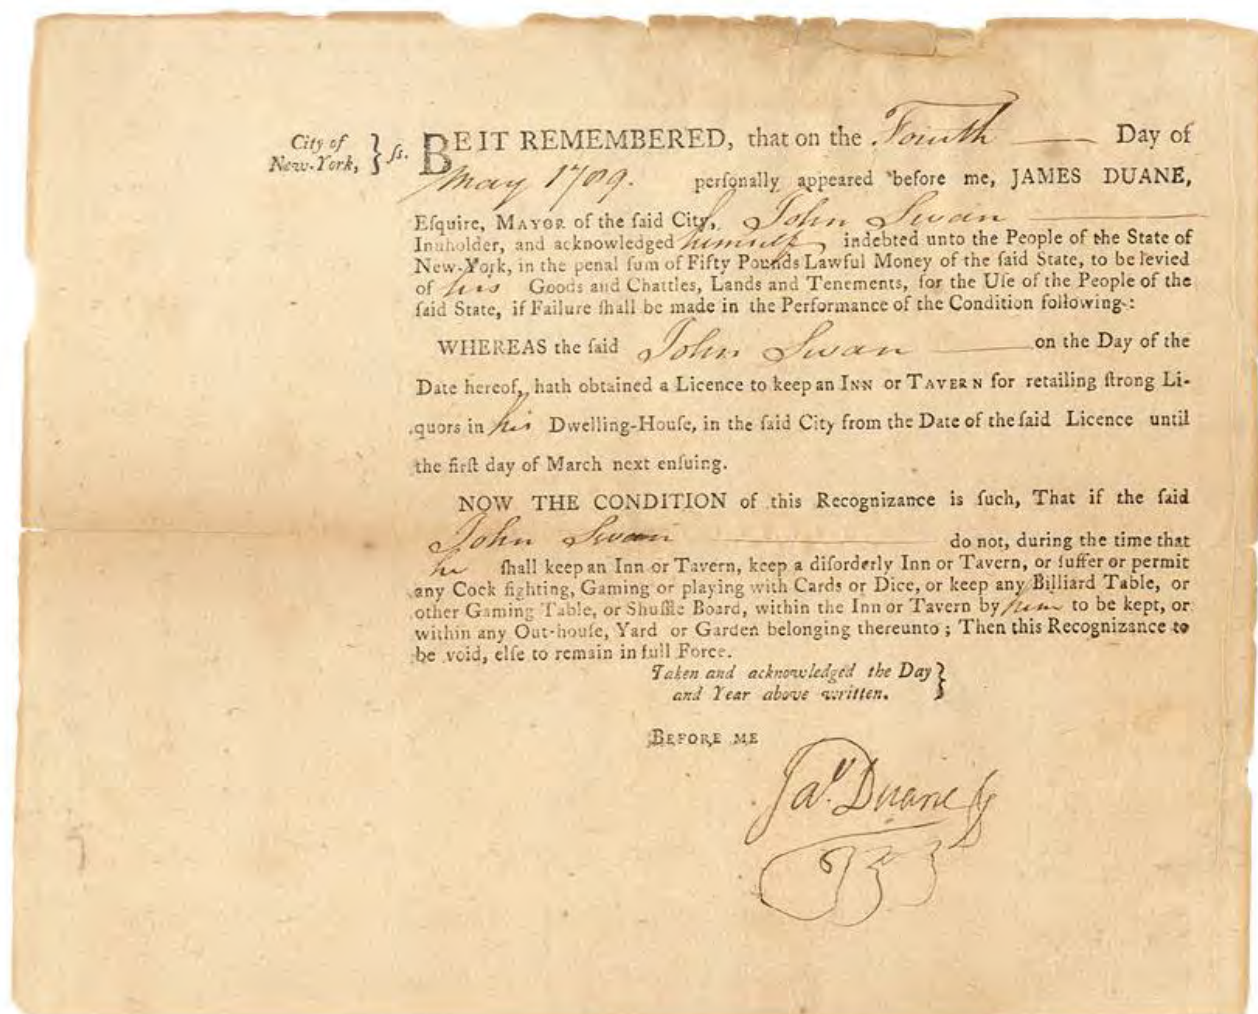 City of
New-York, } ſs.
BE IT REMEMBERED, that on the Fourth Day of
May 1789. perſonally appeared before me, JAMES DUANE,
Eſquire, MAYOR of the ſaid City, John Swan
Innholder, and acknowledged himself indebted unto the People of the State of
New-York, in the penal ſum of Fifty Pounds Lawful Money of the ſaid State, to be levied
of his Goods and Chattles, Lands and Tenements, for the Uſe of the People of the
ſaid State, if Failure ſhall be made in the Performance of the Condition following:
WHEREAS the ſaid John Swan on the Day of the
Date hereof, hath obtained a Licence to keep an INN or TAVERN for retailing ſtrong Li-
quors in his Dwelling-Houſe, in the ſaid City from the Date of the ſaid Licence until
the firſt day of March next enſuing.
NOW THE CONDITION of this Recognizance is ſuch, That if the ſaid
John Swan do not, during the time that
he ſhall keep an Inn or Tavern, keep a diſorderly Inn or Tavern, or ſuffer or permit
any Cock fighting, Gaming or playing with Cards or Dice, or keep any Billiard Table, or
other Gaming Table, or Shuffle Board, within the Inn or Tavern by him to be kept, or
within any Out-houſe, Yard or Garden belonging thereunto; Then this Recognizance to
be void, elſe to remain in full Force.
Taken and acknowledged the Day }
and Year above written.
BEFORE ME
Jas. Duane